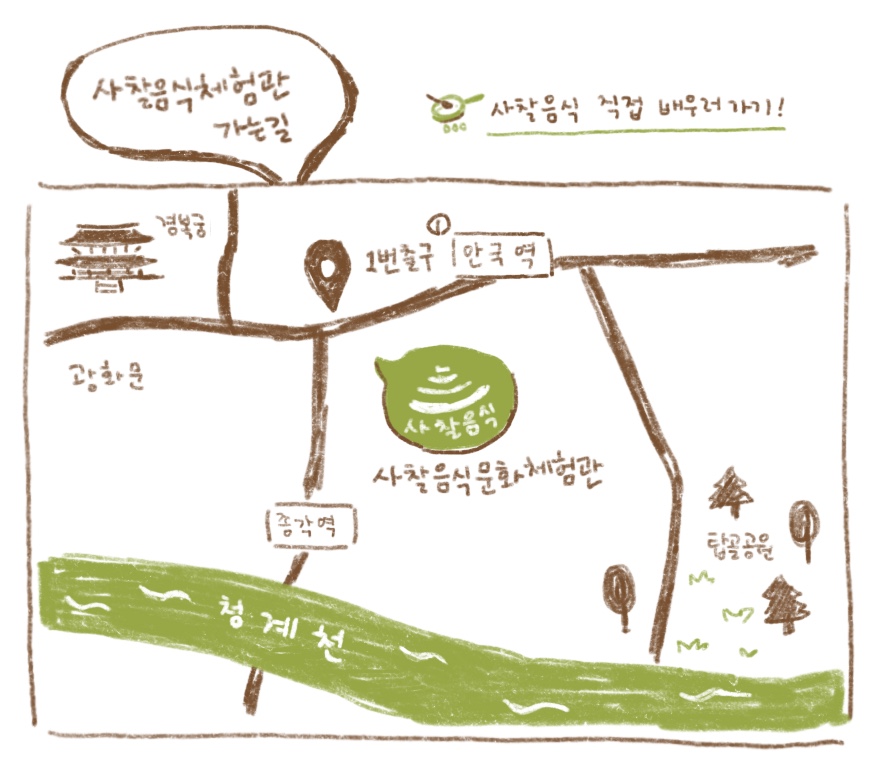 사찰음식체험관
가는길
사찰음식 직접 배우러가기!
경복궁
1번출구
안국역
광화문
사찰음식
사찰음식문화체험관
종각역
탑골공원
청계천